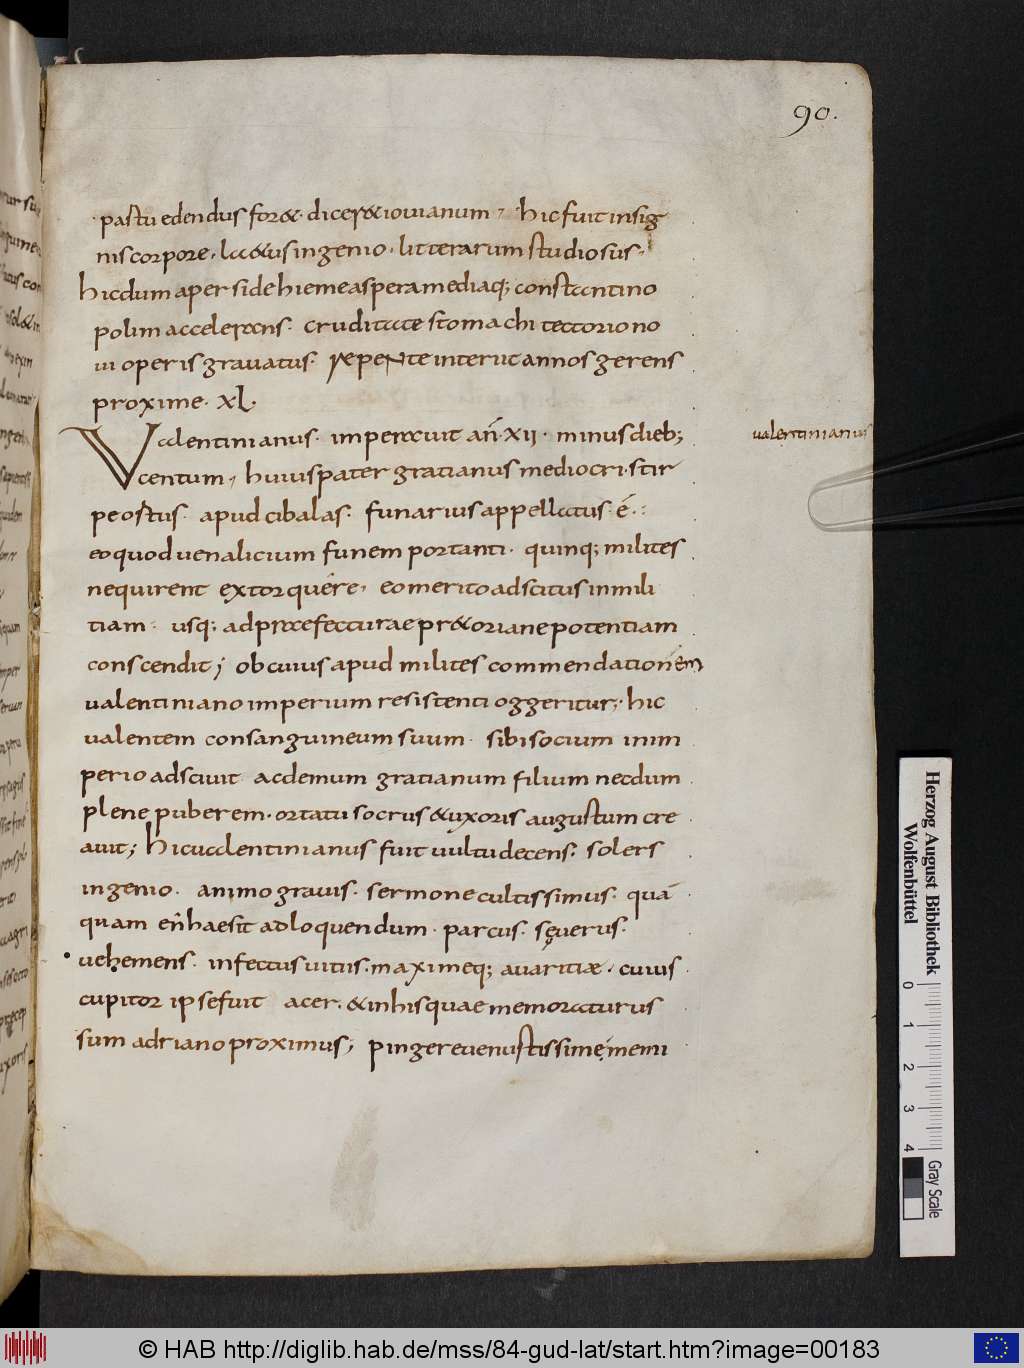 90.
pastu edendus for&. dicer& iouianum, hic fuit insig
nis corpore, l&us ingenio. litterarum studiosus.
hic dum aperside hieme aspera mediaq; constantino
polim accelerans. cruditate stomachi tectorio no
ui operis grauatus. repente interiit annos gerens
proxime. xl.
Valentinianus. imperauit an̄. xii. minus dieb;
centum, huius pater gratianus mediocri. stir
pe ostus. apud cibalas. funarius appellatus. ē.
eo quod uenalicium funem portanti. quinq; milites
nequirent extorquere. eo merito adscitus in mili
tiam. usq; ad praefecturae pr&orianepotentiam
conscendit; ob cuius apud milites commendationem
ualentiniano imperium resistenti oggeritur;. hic
ualentem consanguineum suum. sibi socium in im
perio adsciuit. ac demum gratianum filium necdum
plene puberem. ortatu socrus & uxoris augustum cre
auit; hic ualentinianus fuit uultu decens. solers
ingenio. animo grauis. sermone cultissimus. quā
quam en haesit adloquendum. parcus. sęuerus.
uehemens. infectus uitiis. maximeq; auaritiæ. cuius
cupitor ipse fuit acer. & in his quae memoraturus
sum adriano proximus; pingere uenustissime, memi
ualentinianus
Herzog August Bibliothek
Wolfenbüttel
0 1 2 3 4
Gray Scale
© HAB http://diglib.hab.de/mss/84-gud-lat/start.htm?image=00183